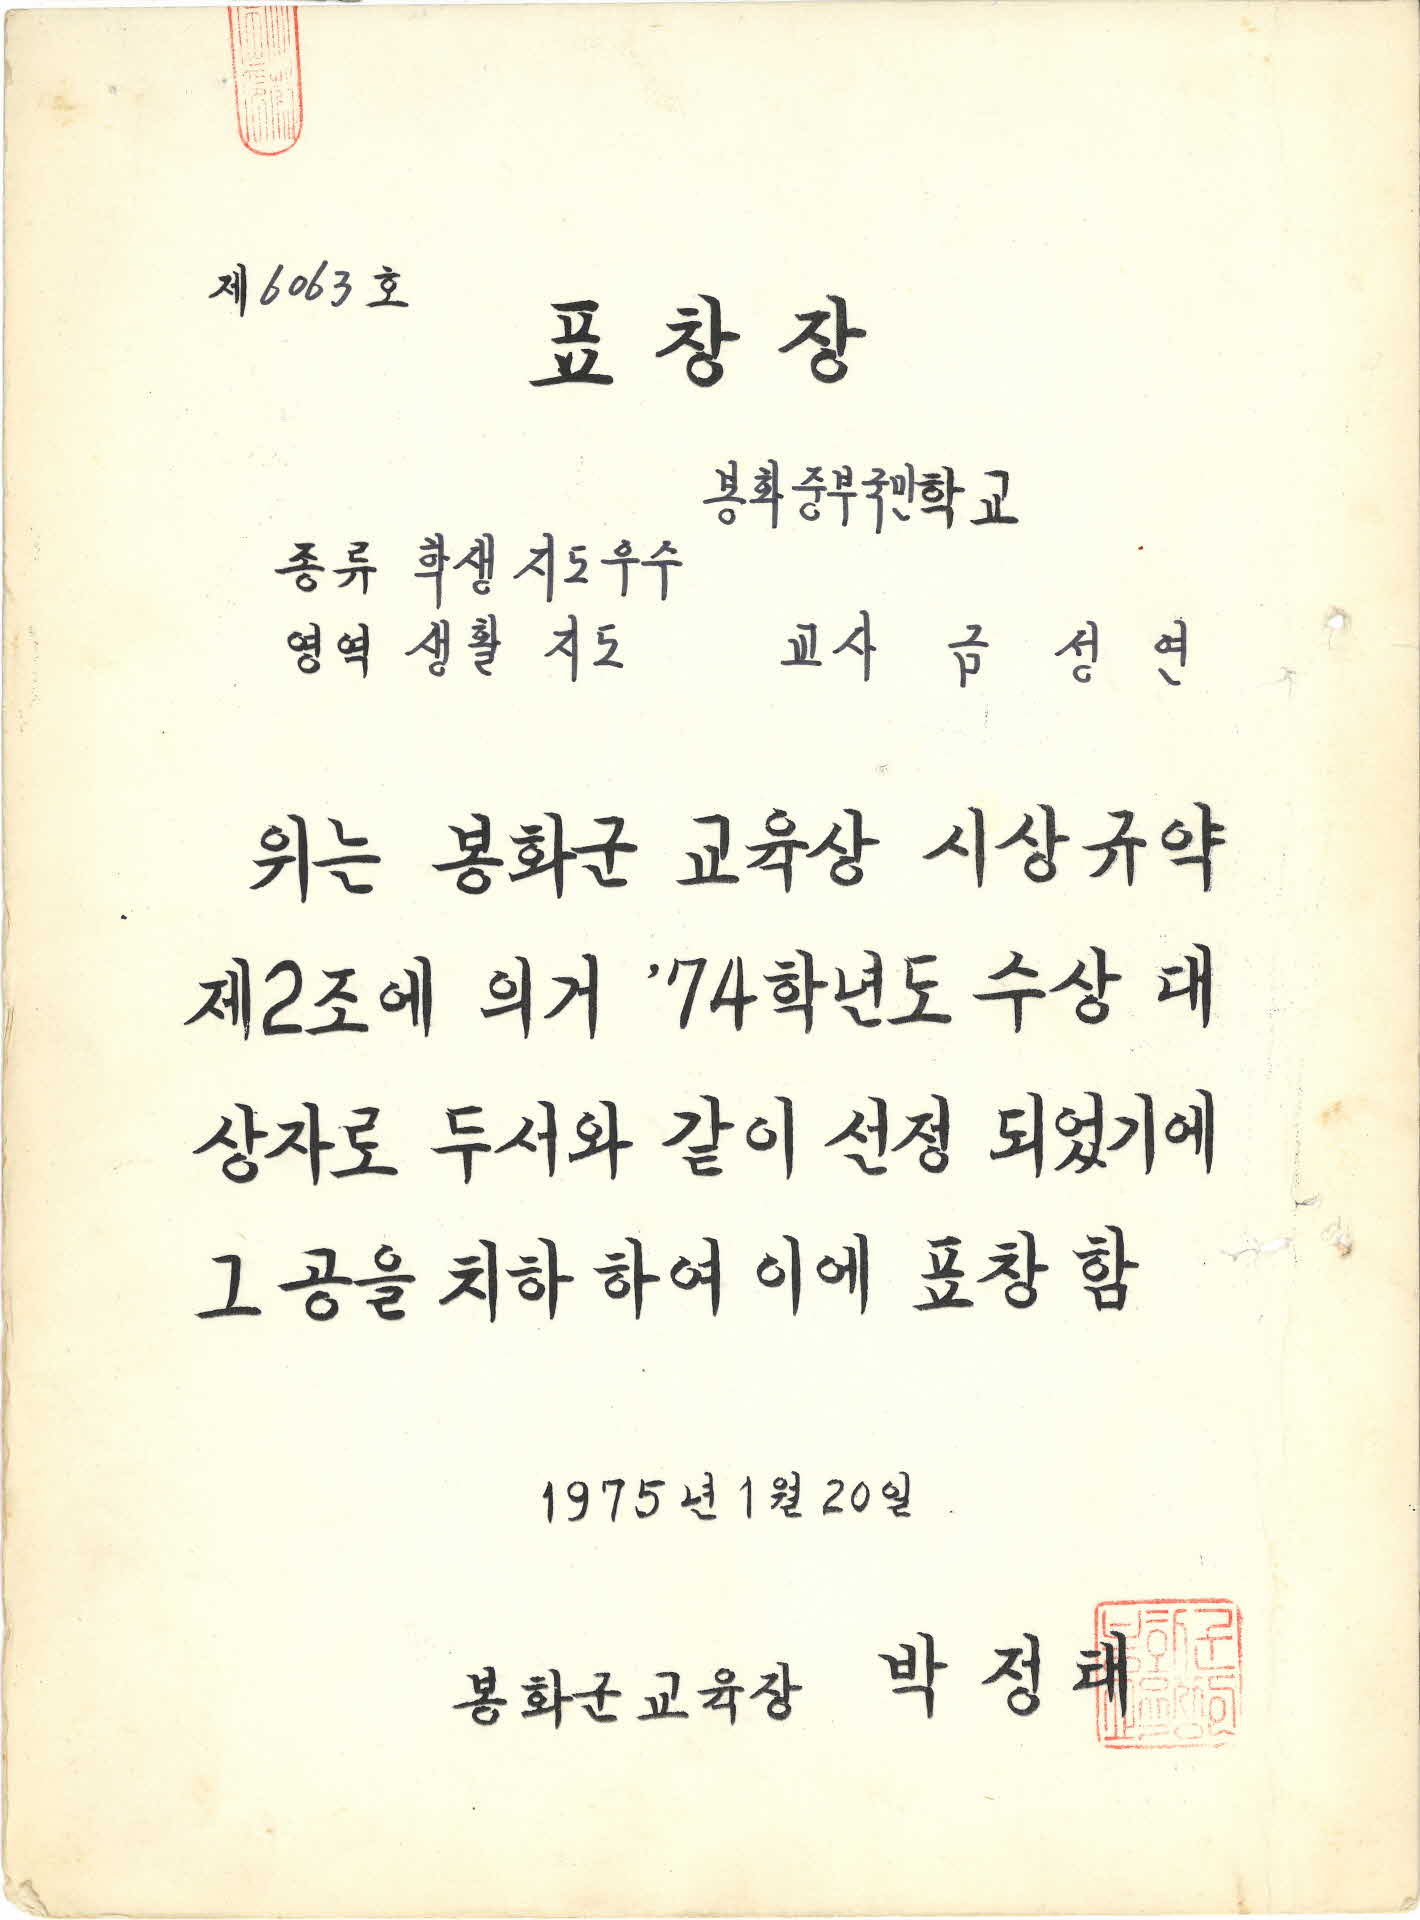 제6063호
표창장
봉화중부국민학교
종류 학생 지도우수
영역 생활 지도 교사 금 성 연
위는 봉화군 교육상 시상규약
제2조에 의거 '74학년도 수상 대
상자로 두서와 같이 선정 되었기에
그 공을 치하 하여 이에 표창 함
1975년 1월 20일
봉화군교육장 박 정 태